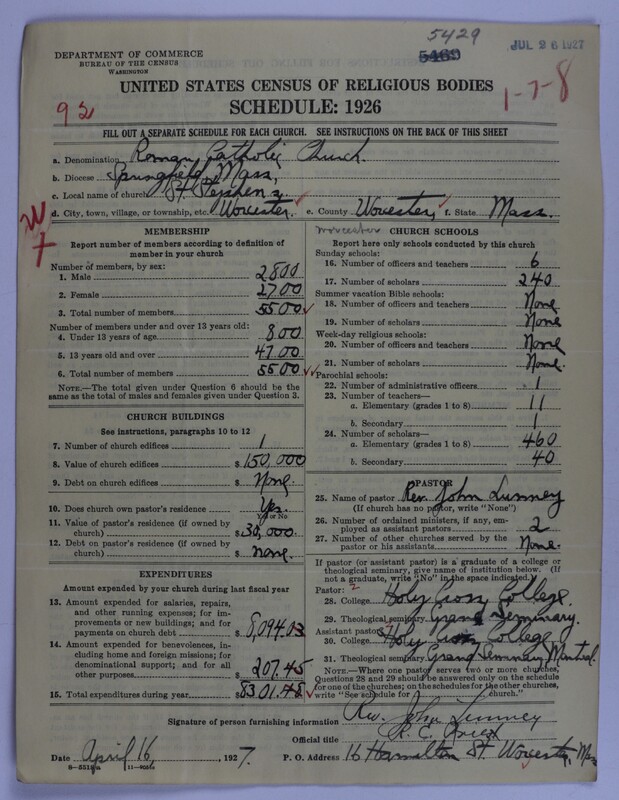 5429
5469
JUL 26 1927
DEPARTMENT OF COMMERCE
BUREAU OF THE CENSUS
WASHINGTON
UNITED STATES CENSUS OF RELIGIOUS BODIES
SCHEDULE: 1926
92
1-7-8
FILL OUT A SEPARATE SCHEDULE FOR EACH CHURCH. SEE INSTRUCTIONS ON THE BACK OF THIS SHEET
a. Denomination Roman Catholic Church.
b. Diocese Springfield Mass,
c. Local name of church St. Stephens,
d. City, town, village, or township, etc. Worcester. e. County Worcester, f. State Mass.
Worcester
W
7
MEMBERSHIP
Report number of members according to definition of
member in your church
Number of members, by sex:
1. Male 2800
2. Female 2700
3. Total number of members 5500
Number of members under and over 13 years old:
4. Under 13 years of age 800
5. 13 years old and over 4700
6. Total number of members 5500
NOTE.—The total given under Question 6 should be
same as the total of males and females given under Question 3.
CHURCH BUILDINGS
See instructions, paragraphs 10 to 12
7. Number of church edifices 1
8. Value of church edifices $150,000
9. Debt on church edifices $ None.
10. Does church own pastor's residence Yes.
Yes or No
11. Value of pastor's residence (if owned by
church) $30,000.
12. Debt on pastor's residence (if owned by
church) $ none.
EXPENDITURES
Amount expended by your church during last fiscal year
13. Amount expended for salaries, repairs,
and other running expenses; for im-
provements or new buildings; and for
payments on church debt $ 8,094.03
14. Amount expended for benevolences, in-
cluding home and foreign missions; for
denominational support; and for all
other purposes $ 207.45
15. Total expenditures during year $8301.48
CHURCH SCHOOLS
Report here only schools conducted by this church
Sunday schools:
16. Number of officers and teachers 6
17. Number of scholars 240
Summer vacation Bible schools:
18. Number of officers and teachers None
19. Number of scholars None
Week-day religious schools:
20. Number of officers and teachers None
21. Number of scholars None.
Parochial schools:
22. Number of administrative officers 1
23. Number of teachers—
a. Elementary (grades 1 to 8) 11
b. Secondary 1
24. Number of scholars—
a. Elementary (grades 1 to 8) 460
b. Secondary 40
PASTOR
25. Name of pastor Rev. John Lunney
(If church has no pastor, write "None")
26. Number of ordained ministers, if any, em-
ployed as assistant pastors 2
27. Number of other churches served by the
pastor or his assistants None.
If pastor (or assistant pastor) is a graduate of a college or
theological seminary, give name of institution below. (If
not a graduate, write "No" in the space indicated.)
Pastor:
28. College Holy Cross College.
29. Theological seminary Grand Seminary.
Assistant pastor:
30. College Holy Cross College
31. Theological seminary Grand Seminary Montreal.
NOTE.—Where one pastor serves two or more churches,
Questions 28 and 29 should be answered only on the schedule
for one of the churches; on the schedules for the other churches,
write "See schedule for church."
Signature of person furnishing information Rev. John Lunney
Official title R. C. Priest
Date April 16, 1927. P. O. Address 16 Hamilton St. Worcester, Mass
8—5518a